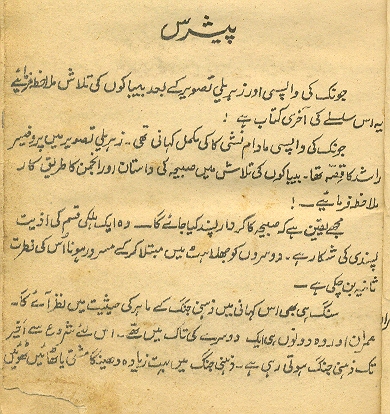 پیشرس
جونک کی واپسی اور زہریلی تصویر کے بعد بیباکوں کی تلاش ملاحظہ فرمائیے
یہ اس سلسلے کی آخری کتاب ہے !
جونک کی واپسی مادام نشی کا کی مکمل کہانی تھی۔ زہریلی تصویر میں پروفیسر
راشد کا قصہ تھا۔ بیباکوں کی تلاش میں صبیحہ کی داستان اور انجمن کا طریق کار
ملاحظہ فرمائیے۔ !
مجھے یقین ہے کہ صبیحہ کا کردار پسند کیا جائے گا۔ وہ ایک ہلکی قسم کی اذیت
پسندی کی شکار ہے۔ دوسروں کو جھلاہٹ میں مبتلا کر کے مسرور ہونا اُس کی فطرت
ثانیہ بن چکی ہے۔
سنگ ہی بھی اس کہانی میں ذہنی جنگ کے ماہر کی حیثیت میں نظر آئے گا۔
عمران اور وہ دونوں ہی ایک دوسرے کی تاک میں تھے۔ اس لئے شروع سے اخیر
تک ذہنی جنگ ہوتی رہی ہے۔ ذہنی جنگ میں بہت زیادہ دھینگا مشتی یا ٹھائیں ٹھوئیں